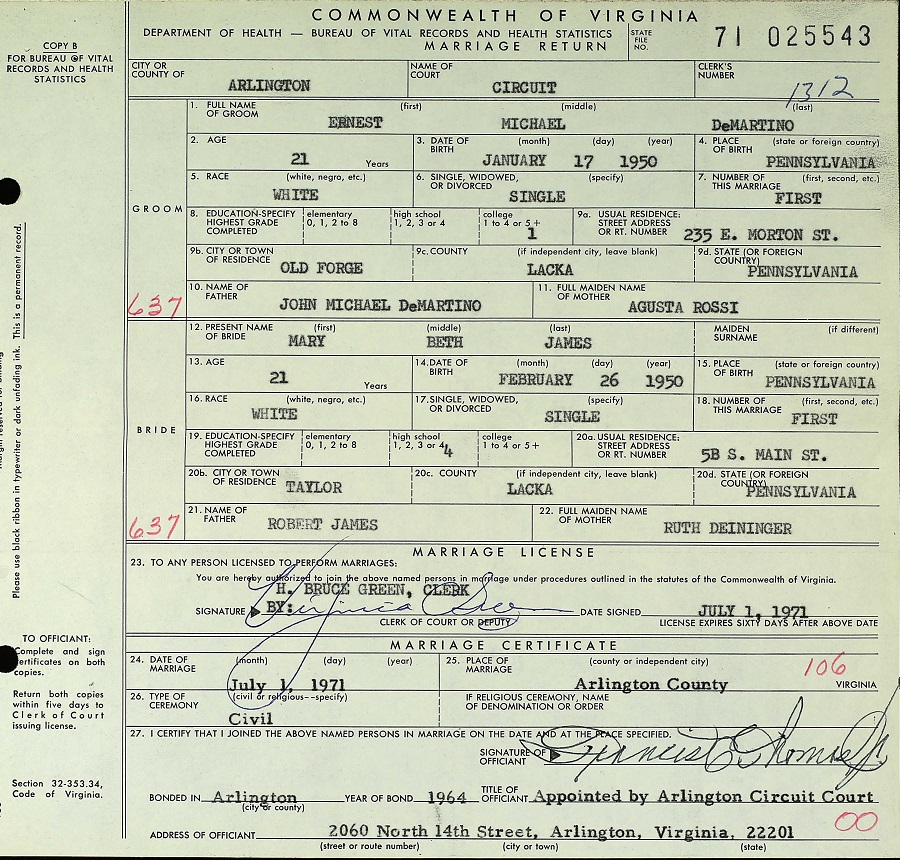 COMMONWEALTH OF VIRGINIA
DEPARTMENT OF HEALTH — BUREAU OF VITAL RECORDS AND HEALTH STATISTICS
MARRIAGE RETURN
STATE FILE NO. 71 025543
COPY B
FOR BUREAU OF VITAL
RECORDS AND HEALTH
STATISTICS
CITY OR COUNTY OF ARLINGTON NAME OF COURT CIRCUIT CLERK'S NUMBER 1312
GROOM
1. FULL NAME OF GROOM (first) ERNEST (middle) MICHAEL (last) DeMARTINO
2. AGE 21 Years 3. DATE OF BIRTH (month) (day) (year) JANUARY 17 1950 4. PLACE OF BIRTH (state or foreign country) PENNSYLVANIA
5. RACE (white, negro, etc.) WHITE 6. SINGLE, WIDOWED, OR DIVORCED (specify) SINGLE 7. NUMBER OF THIS MARRIAGE (first, second, etc.) FIRST
8. EDUCATION-SPECIFY HIGHEST GRADE COMPLETED elementary 0, 1, 2 to 8 high school 1, 2, 3 or 4 college 1 to 4 or 5+ 1 9a. USUAL RESIDENCE: STREET ADDRESS OR RT. NUMBER 235 E. MORTON ST.
9b. CITY OR TOWN OF RESIDENCE OLD FORGE 9c. COUNTY (if independent city, leave blank) LACKA 9d. STATE (OR FOREIGN COUNTRY) PENNSYLVANIA
637
10. NAME OF FATHER JOHN MICHAEL DeMARTINO 11. FULL MAIDEN NAME OF MOTHER AGUSTA ROSSI
BRIDE
12. PRESENT NAME OF BRIDE (first) MARY (middle) BETH (last) JAMES MAIDEN SURNAME (if different)
13. AGE 21 Years 14. DATE OF BIRTH (month) (day) (year) FEBRUARY 26 1950 15. PLACE OF BIRTH (state or foreign country) PENNSYLVANIA
16. RACE (white, negro, etc.) WHITE 17. SINGLE, WIDOWED, OR DIVORCED (specify) SINGLE 18. NUMBER OF THIS MARRIAGE (first, second, etc.) FIRST
19. EDUCATION-SPECIFY HIGHEST GRADE COMPLETED elementary 0, 1, 2 to 8 high school 1, 2, 3 or 4 4 college 1 to 4 or 5+ 20a. USUAL RESIDENCE: STREET ADDRESS OR RT. NUMBER 5B S. MAIN ST.
20b. CITY OR TOWN OF RESIDENCE TAYLOR 20c. COUNTY (if independent city, leave blank) LACKA 20d. STATE (OR FOREIGN COUNTRY) PENNSYLVANIA
637
21. NAME OF FATHER ROBERT JAMES 22. FULL MAIDEN NAME OF MOTHER RUTH DEININGER
MARRIAGE LICENSE
23. TO ANY PERSON LICENSED TO PERFORM MARRIAGES:
You are hereby authorized to join the above named persons in marriage under procedures outlined in the statutes of the Commonwealth of Virginia.
H. BRUCE GREEN, CLERK
SIGNATURE BY: Virginia DATE SIGNED JULY 1, 1971
CLERK OF COURT OR DEPUTY LICENSE EXPIRES SIXTY DAYS AFTER ABOVE DATE
MARRIAGE CERTIFICATE
24. DATE OF MARRIAGE (month) (day) (year) July 1, 1971 25. PLACE OF MARRIAGE (county or independent city) Arlington County 106 VIRGINIA
26. TYPE OF CEREMONY (civil or religious--specify) Civil IF RELIGIOUS CEREMONY, NAME OF DENOMINATION OR ORDER
27. I CERTIFY THAT I JOINED THE ABOVE NAMED PERSONS IN MARRIAGE ON THE DATE AND AT THE PLACE SPECIFIED.
SIGNATURE OF OFFICIANT Francis E. Thomas Jr.
BONDED IN Arlington (city or county) YEAR OF BOND 1964 TITLE OF OFFICIANT Appointed by Arlington Circuit Court
00
ADDRESS OF OFFICIANT 2060 North 14th Street, Arlington, Virginia, 22201
(street or route number) (city or town) (state)
Please use black ribbon in typewriter or dark unfading ink. This is a permanent record.
TO OFFICIANT:
Complete and sign
certificates on both
copies.
Return both copies
within five days to
Clerk of Court
issuing license.
Section 32-353.34,
Code of Virginia.